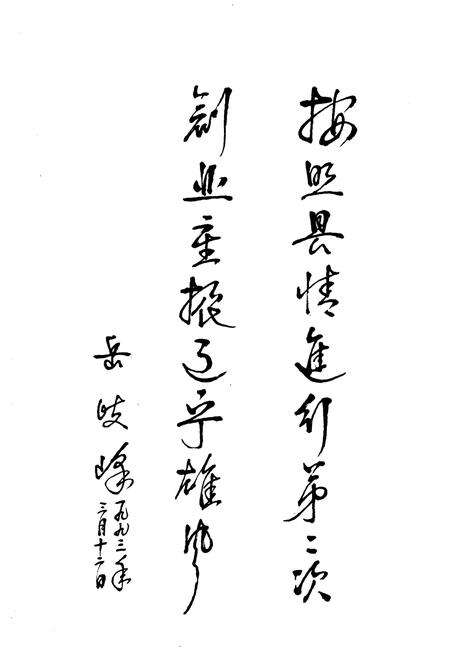 按照县情進行第二次
創业重振辽宁雄风
岳岐峰
一九九三年
三月十二日